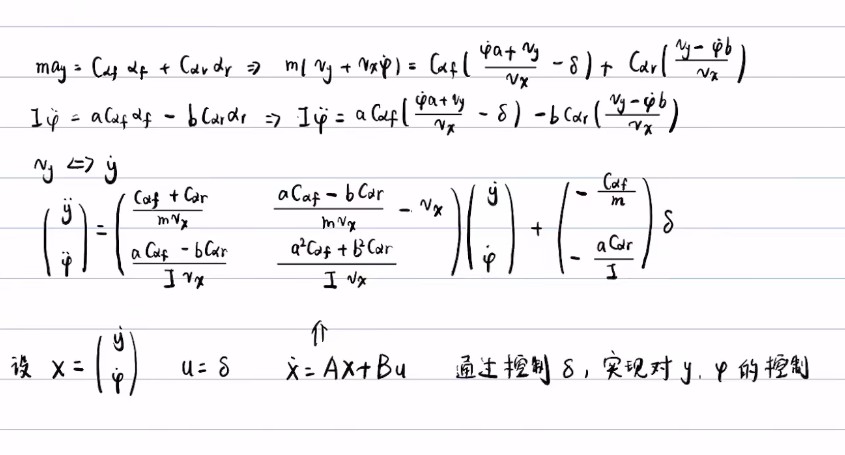 may = Cαf αf + Cαr αr ⇒ m(vy + vxφ̇) = Cαf((φ̇a + vy)/vx − δ) + Cαr((vy − φ̇b)/vx)
Iφ̈ = aCαf αf − bCαr αr ⇒ Iφ̈ = aCαf((φ̇a + vy)/vx − δ) − bCαr((vy − φ̇b)/vx)
vy ⇔ ẏ
(ÿ ; φ̈) = ((Cαf + Cαr)/(mvx)  (aCαf − bCαr)/(mvx) − vx ; (aCαf − bCαr)/(Ivx)  (a²Cαf + b²Cαr)/(Ivx)) (ẏ ; φ̇) + (−Cαf/m ; −aCαr/I) δ
⇑
设 X = (ẏ ; φ̇)  u = δ  ẋ = AX + Bu  通过控制 δ, 实现对 y, φ 的控制